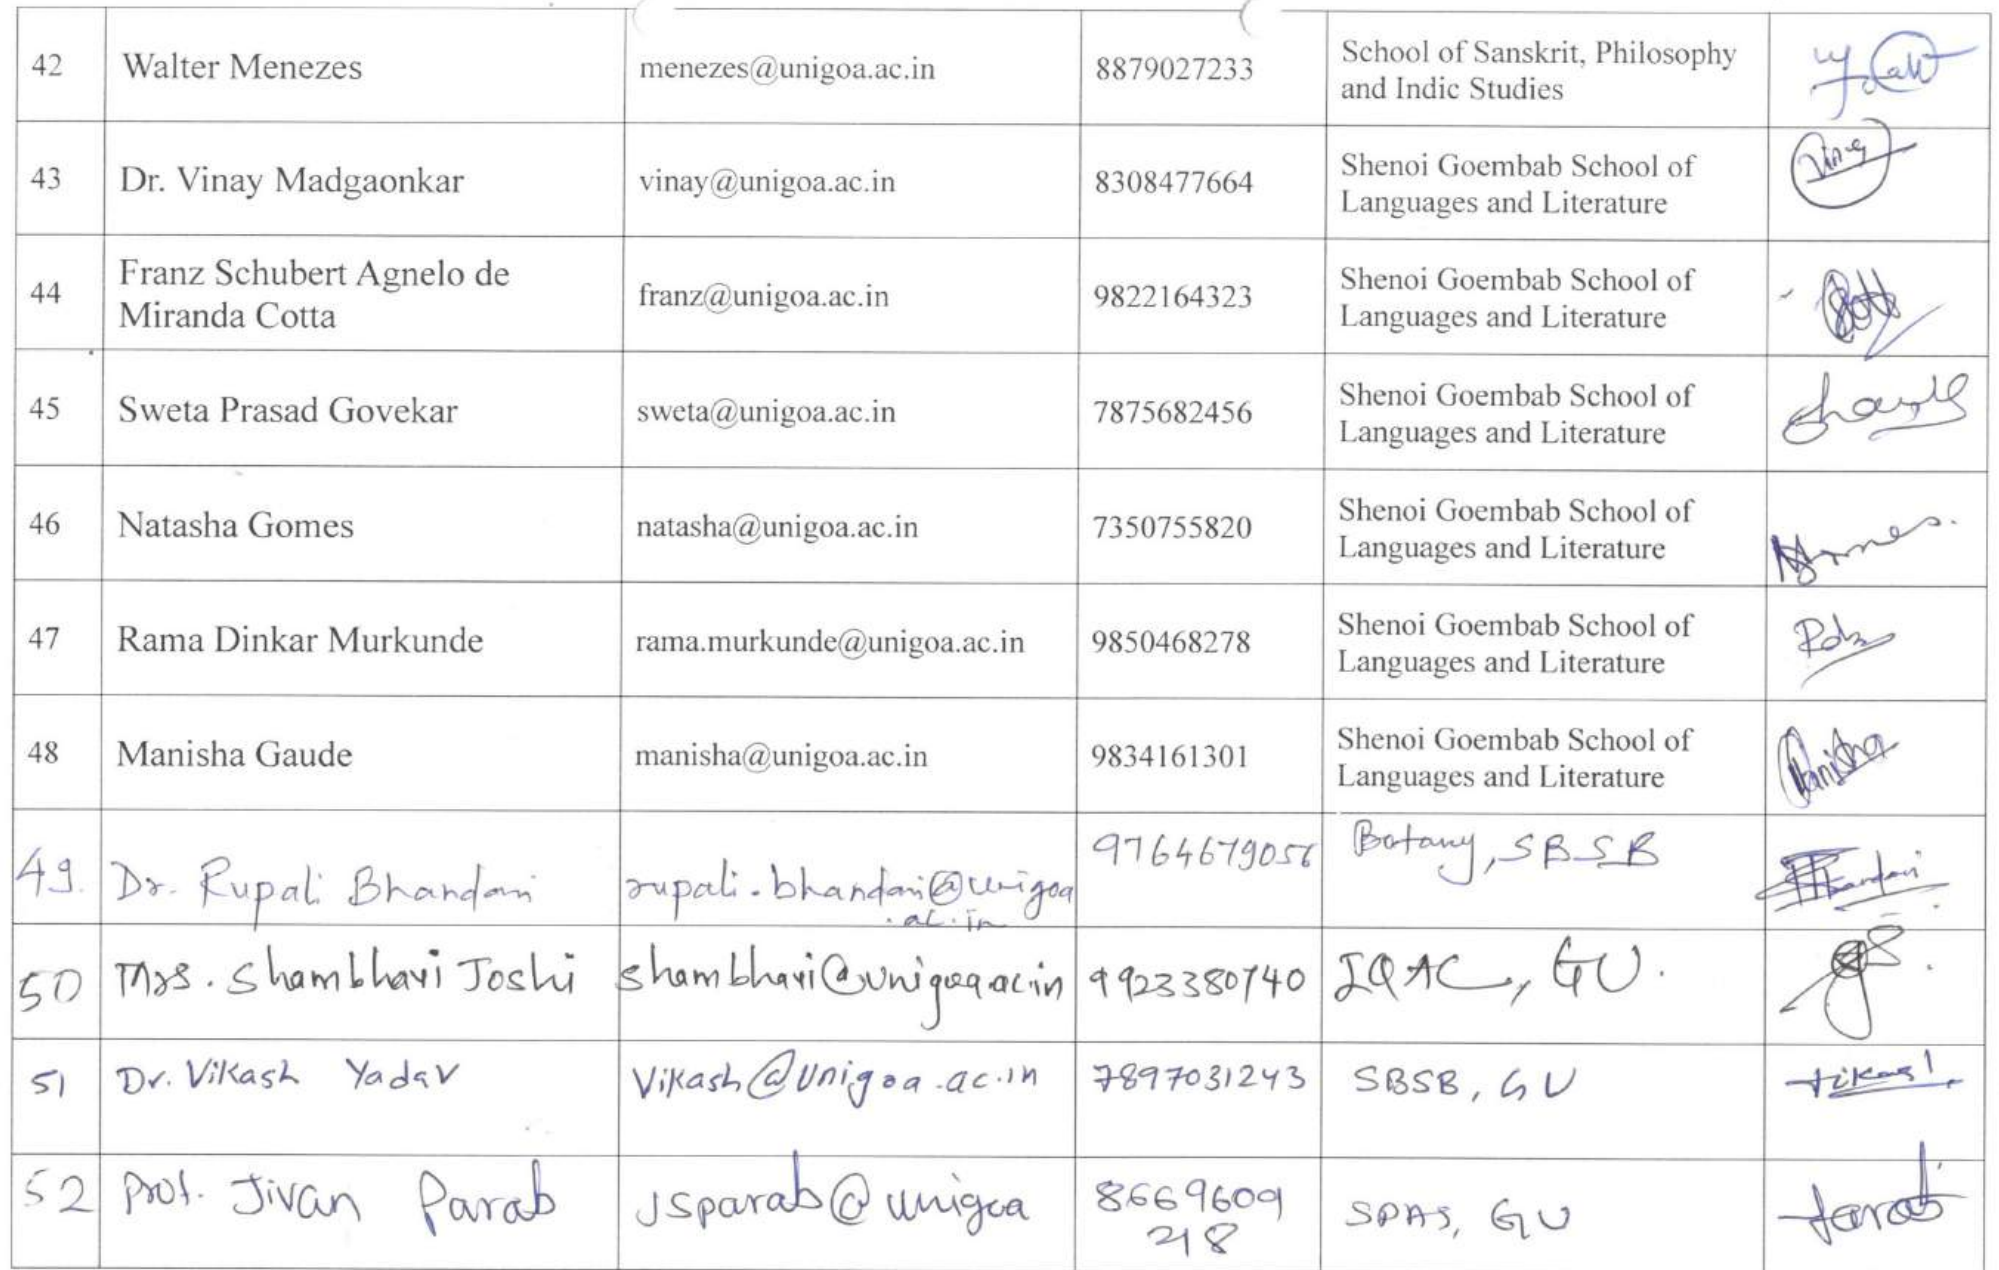 42 Walter Menezes menezes@unigoa.ac.in 8879027233 School of Sanskrit, Philosophy
and Indic Studies
43 Dr. Vinay Madgaonkar vinay@unigoa.ac.in 8308477664 Shenoi Goembab School of
Languages and Literature
44 Franz Schubert Agnelo de
Miranda Cotta franz@unigoa.ac.in 9822164323 Shenoi Goembab School of
Languages and Literature
45 Sweta Prasad Govekar sweta@unigoa.ac.in 7875682456 Shenoi Goembab School of
Languages and Literature
46 Natasha Gomes natasha@unigoa.ac.in 7350755820 Shenoi Goembab School of
Languages and Literature
47 Rama Dinkar Murkunde rama.murkunde@unigoa.ac.in 9850468278 Shenoi Goembab School of
Languages and Literature
48 Manisha Gaude manisha@unigoa.ac.in 9834161301 Shenoi Goembab School of
Languages and Literature
Manisha
49. Dr. Rupali Bhandari rupali.bhandari@unigoa
.ac.in 9764679056 Botany, SBSB
50 Mrs. Shambhavi Joshi shambhavi@unigoa.ac.in 9923380740 IQAC, GU.
51 Dr. Vikash Yadav Vikash@unigoa.ac.in 7897031243 SBSB, GU
52 Prof. Jivan Parab Jsparab@unigoa 8669609
218 SPAS, GU
Parab